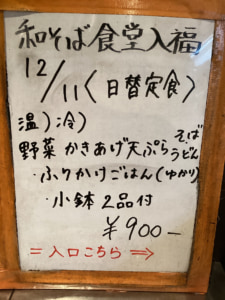 和そば食堂入福
12/11〈日替定食〉
温)冷)
野菜かきあげ天ぷら そば うどん
・ふりかけごはん(ゆかり)
・小鉢2品付
¥900-
=入口こちら⇒